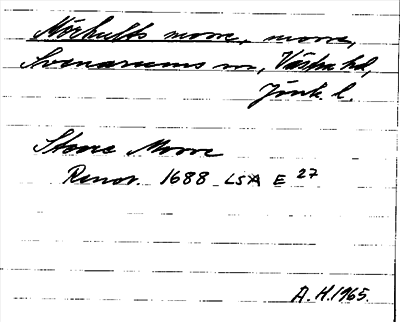 Nörhults mosse, mosse,
Svenarums sn, Västra hd,
Jönk. l.
Stora Mosse
Renov. 1688 LSA E 27
A. H. 1965.